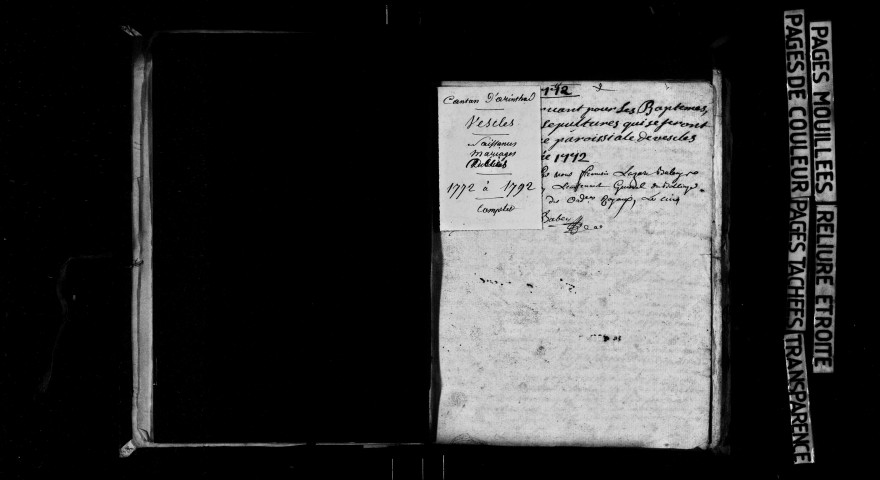 Canton D'arinthod
Vescles
Naissances
Mariages
Décès
1772 à 1792
Complet
1772
vant pour Les Baptemes,
sepultures qui se feront
e paroissiale de vescles
1772
nous francois Lazare
Lieutenant General
des ordres Royaux, Le cinq
PAGES MOUILLEES RELIURE ETROITE
PAGES DE COULEUR PAGES TACHEES TRANSPARENCE